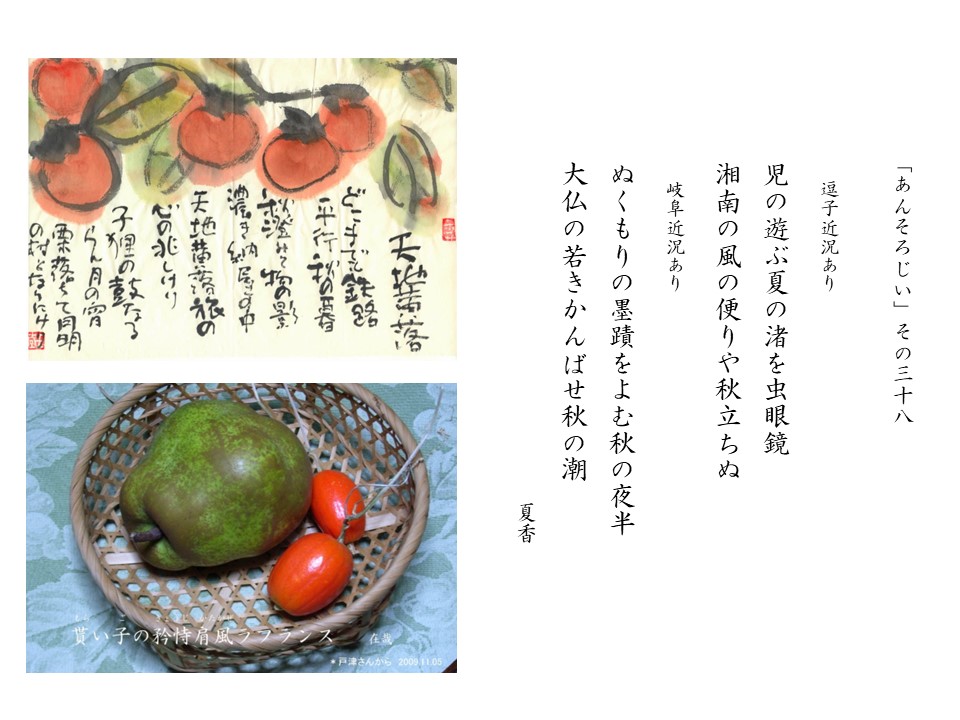 「あんそろじい」その三十八
逗子近況あり
児の遊ぶ夏の渚を虫眼鏡
湘南の風の便りや秋立ちぬ
岐阜近況あり
ぬくもりの墨蹟をよむ秋の夜半
大仏の若きかんばせ秋の潮
夏香
天地黄落
どこまでも鉄路
平行秋の暮
秋澄みて物の影
濃き納屋の中
天地黄落旅の
心の兆しけり
子狸の鼓なる
らん月の宵
栗落ちて月明
の村となりにけり
貰い子の矜恃肩風ラフランス 在哉
＊戸津さんから 2009.11.05